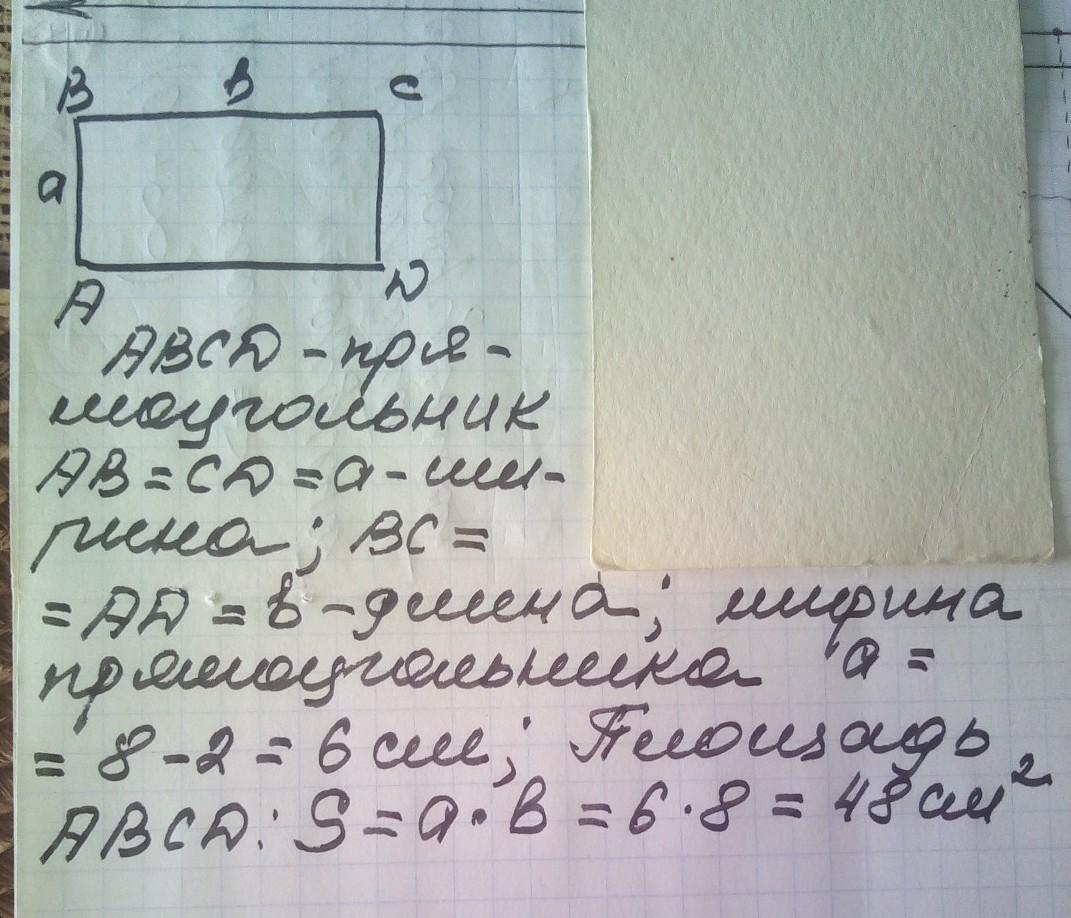 B b C
a
A D
ABCD - пря-
моугольник
AB = CD = a - ши-
рина; BC =
= AD = b - длина; ширина
прямоугольника a =
= 8 - 2 = 6 см; Площадь
ABCD: S = a · b = 6 · 8 = 48 см²